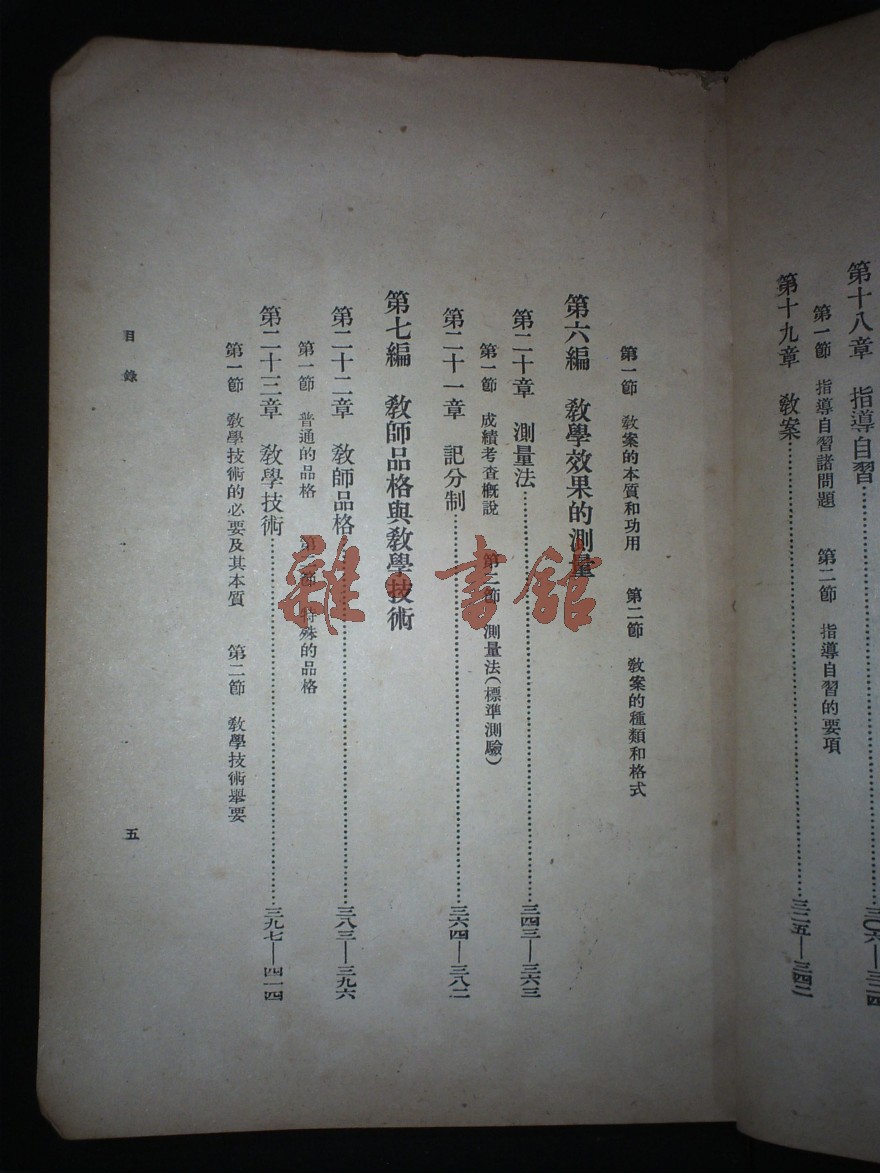 第十八章　指導自習……三〇六—三二四
第一節　指導自習諸問題　第二節　指導自習的要項
第十九章　敎案……三二五—三四二
第一節　敎案的本質和功用　第二節　敎案的種類和格式
第六編　敎學效果的測量
第二十章　測量法……三四三—三六三
第一節　成績考查概說　第二節　測量法(標準測驗)
第二十一章　記分制……三六四—三八二
第七編　敎師品格與敎學技術
第二十二章　敎師品格……三八三—三九六
第一節　普通的品格　第二節　特殊的品格
第二十三章　敎學技術……三九七—四一四
第一節　敎學技術的必要及其本質　第二節　敎學技術舉要
目錄　五
雜·書館